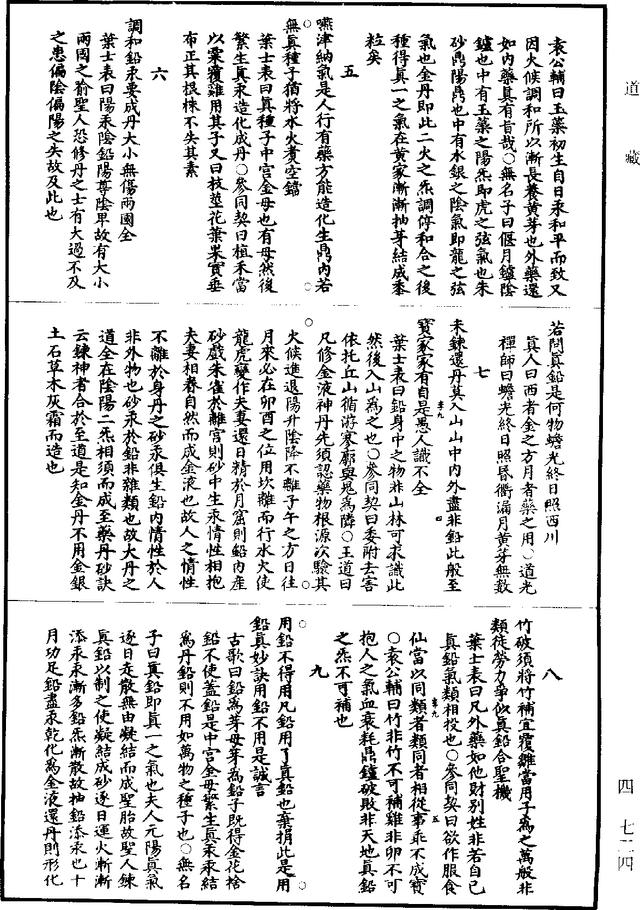 道藏
袁公輔曰玉藥初生自日汞和平而致又
因火候調和所以漸長養黃芽也外藥還
如內藥真有旨哉○無名子曰偃月鑪陰
鑪也中有玉藥之陽炁即虎之弦氣也朱
砂鼎陽鼎也中有水銀之陰氣即龍之弦
氣也金丹即此二火之炁調停和合之後
種得真一之氣在黃家漸漸抽芽結成黍
粒矣
五
嚥津納氣是人行有藥方能造化生鼎內若
無真種子猶將水火煑空鐺
葉士表曰真種子中宮金母也有母然後
繁生真汞造化成丹○參同契曰植禾當
以粟覆雞用其子又曰枝莖花葉果實垂
布正其根株不失其素
六
調和鉛汞要成丹大小無傷兩國全
葉士表曰陽汞陰鉛陽尊陰卑故有大小
兩國之喻聖人恐修丹之士有大過不及
之患偏陰偏陽之失故及此也
若問真鉛是何物蟾光終日照西川
真人曰西者金之方月者藥之用○道光
禪師曰蟾光終日照昏衢漏月黃芽無數
七
未鍊還丹莫入山山中內外盡非鉛此般至
寶家家有自是愚人識不全
葉士表曰鉛身中之物非山林可求識此
然後入山為之也○參同契曰委附去害
依托丘山循游寥廓與鬼為隣○王道曰
凡修金液神丹先須認藥物根源次驗其
火候進退陽升陰降不離子午之方日往
月來必在卯酉之位用坎離而行水火使
龍虎變作夫妻還日精於月窟則鉛內產
砂戲朱雀於離宮則砂中生汞情性相抱
夫妻相眷自然而成金液也故人之情性
不離於身丹之砂汞俱生鉛內情性於人
非外物也砂汞於鉛非雜類也故大丹之
道全在陰陽二炁相須而成至藥丹砂訣
云鍊神者合於至道是知金丹不用金銀
土石草木灰霜而造也
八
竹破須將竹補宜覆雞當用子為之萬般非
類徒勞力爭似真鉛合聖機
葉士表曰凡外藥如他財別姓非若自己
真鉛氣類相投也○參同契曰欲作服食
仙當以同類者類同者相從事乖不成寶
○袁公輔曰竹非竹不可補雞非卵不可
抱人之氣血衰耗鼎鑪破敗非天地真鉛
之炁不可補也
九
用鉛不得用凡鉛用了真鉛也棄捐此是用
鉛真妙訣用鉛不用是誠言
古歌曰鉛為芽母芽為鉛子既得金花捨
鉛不使蓋鉛是中宮金母繁生真汞汞結
為丹鉛則不用如萬物之種子也○無名
子曰真鉛即真一之氣也夫人元陽真氣
逐日走散無由凝結而成聖胎故聖人鍊
真鉛以制之使凝結成砂逐日運火漸漸
添汞汞漸多鉛炁漸散故抽鉛添汞也十
月功足鉛盡汞乾化為金液還丹則形化
四 七二四